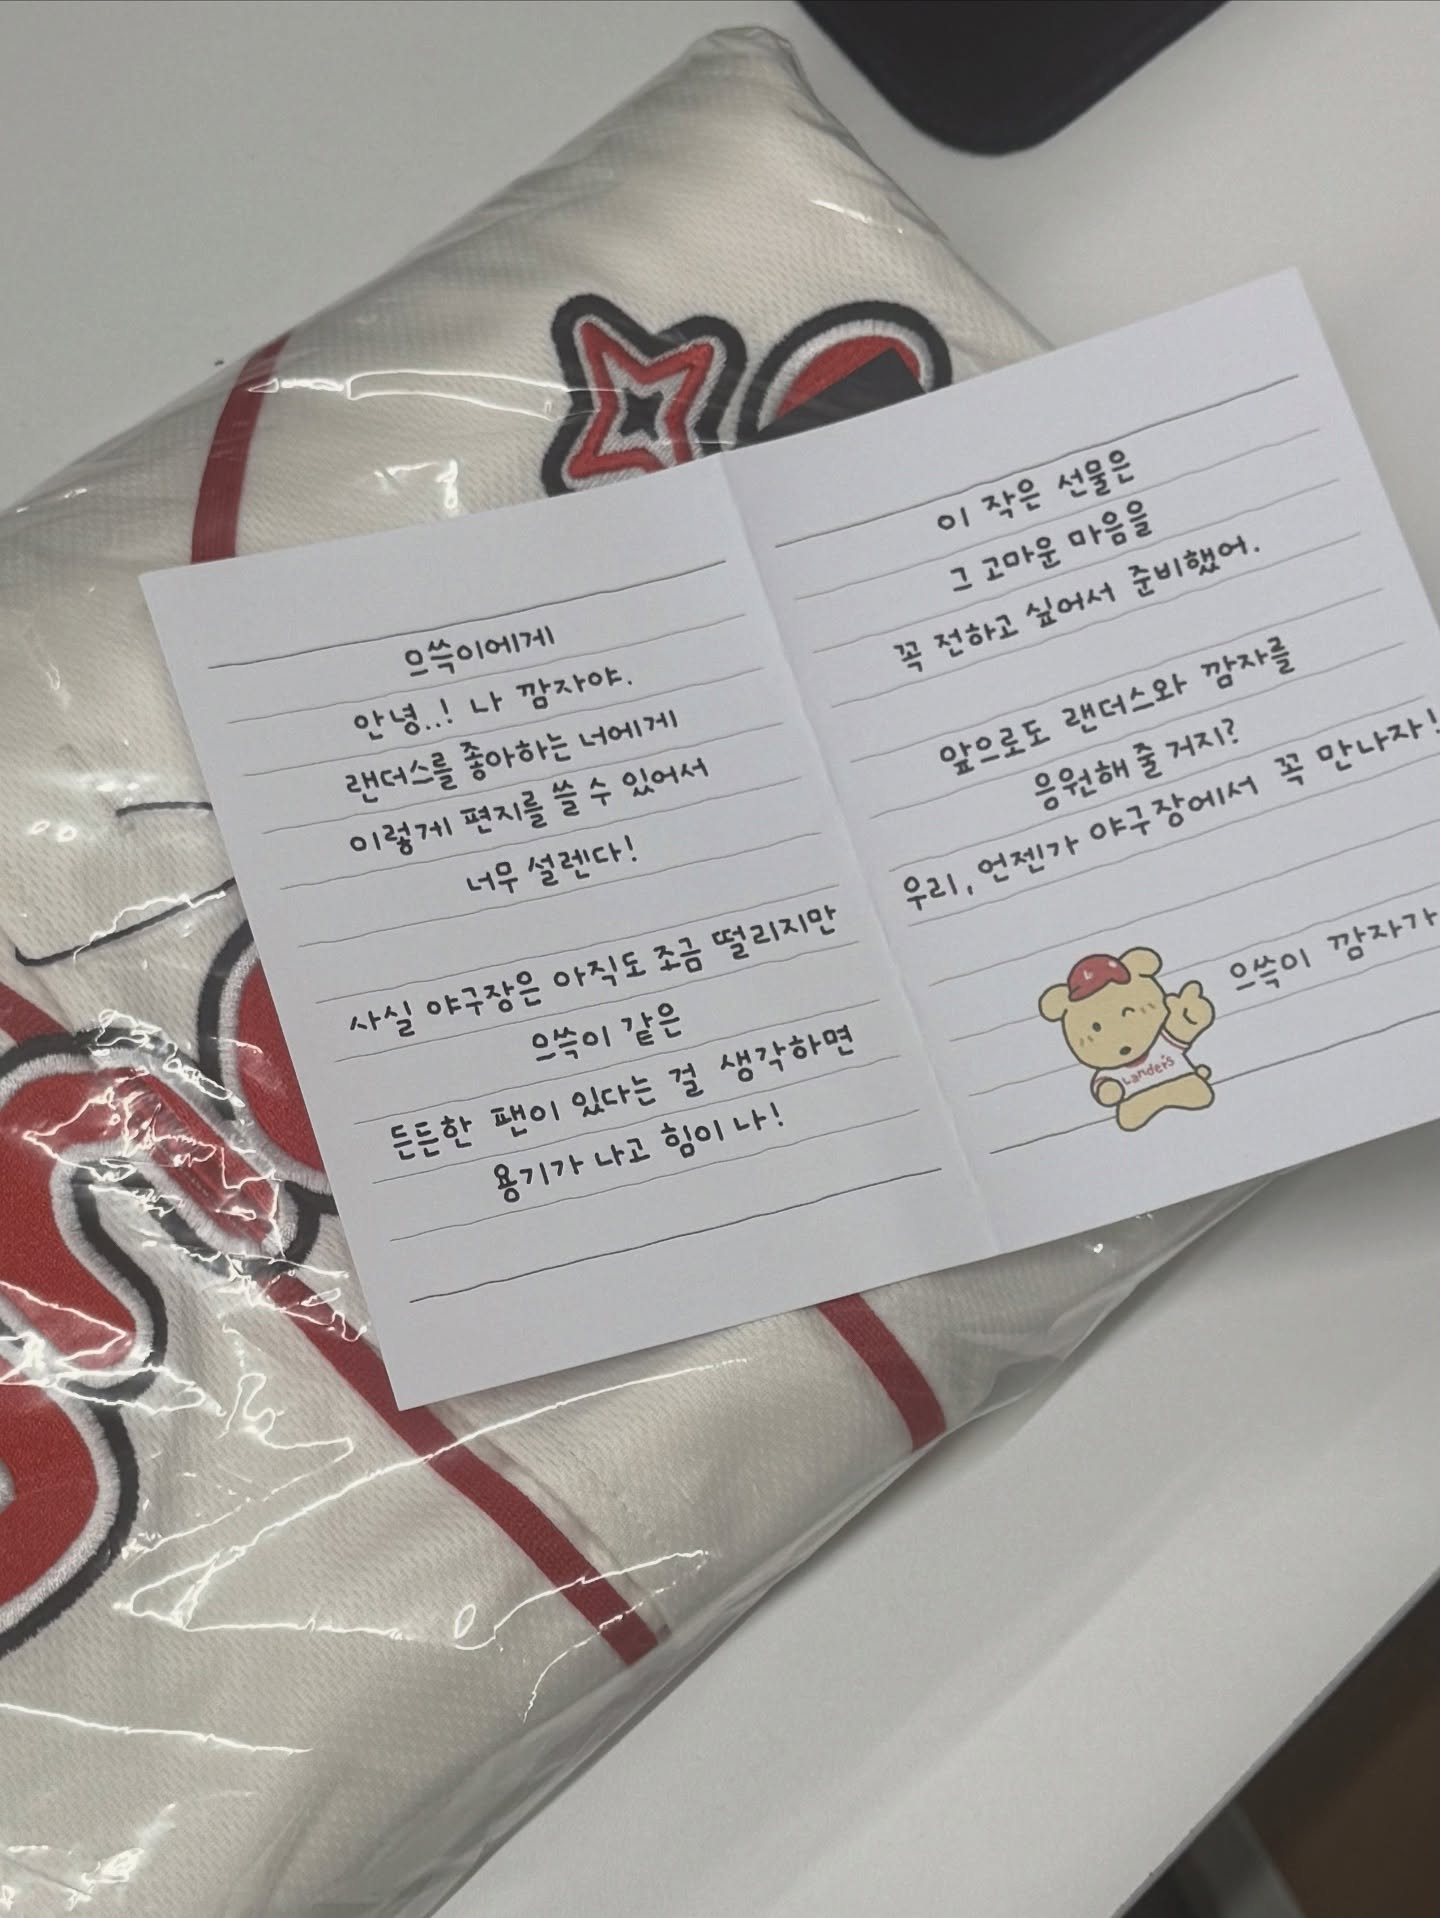 으쓱이에게
안녕..! 나 깜자야.
랜더스를 좋아하는 너에게
이렇게 편지를 쓸 수 있어서
너무 설렌다!
사실 야구장은 아직도 조금 떨리지만
으쓱이 같은
든든한 팬이 있다는 걸 생각하면
용기가 나고 힘이 나!
이 작은 선물은
그 고마운 마음을
꼭 전하고 싶어서 준비했어.
앞으로도 랜더스와 깜자를
응원해 줄 거지?
우리, 언젠가 야구장에서 꼭 만나자!
으쓱이 깜자가
L
Landers